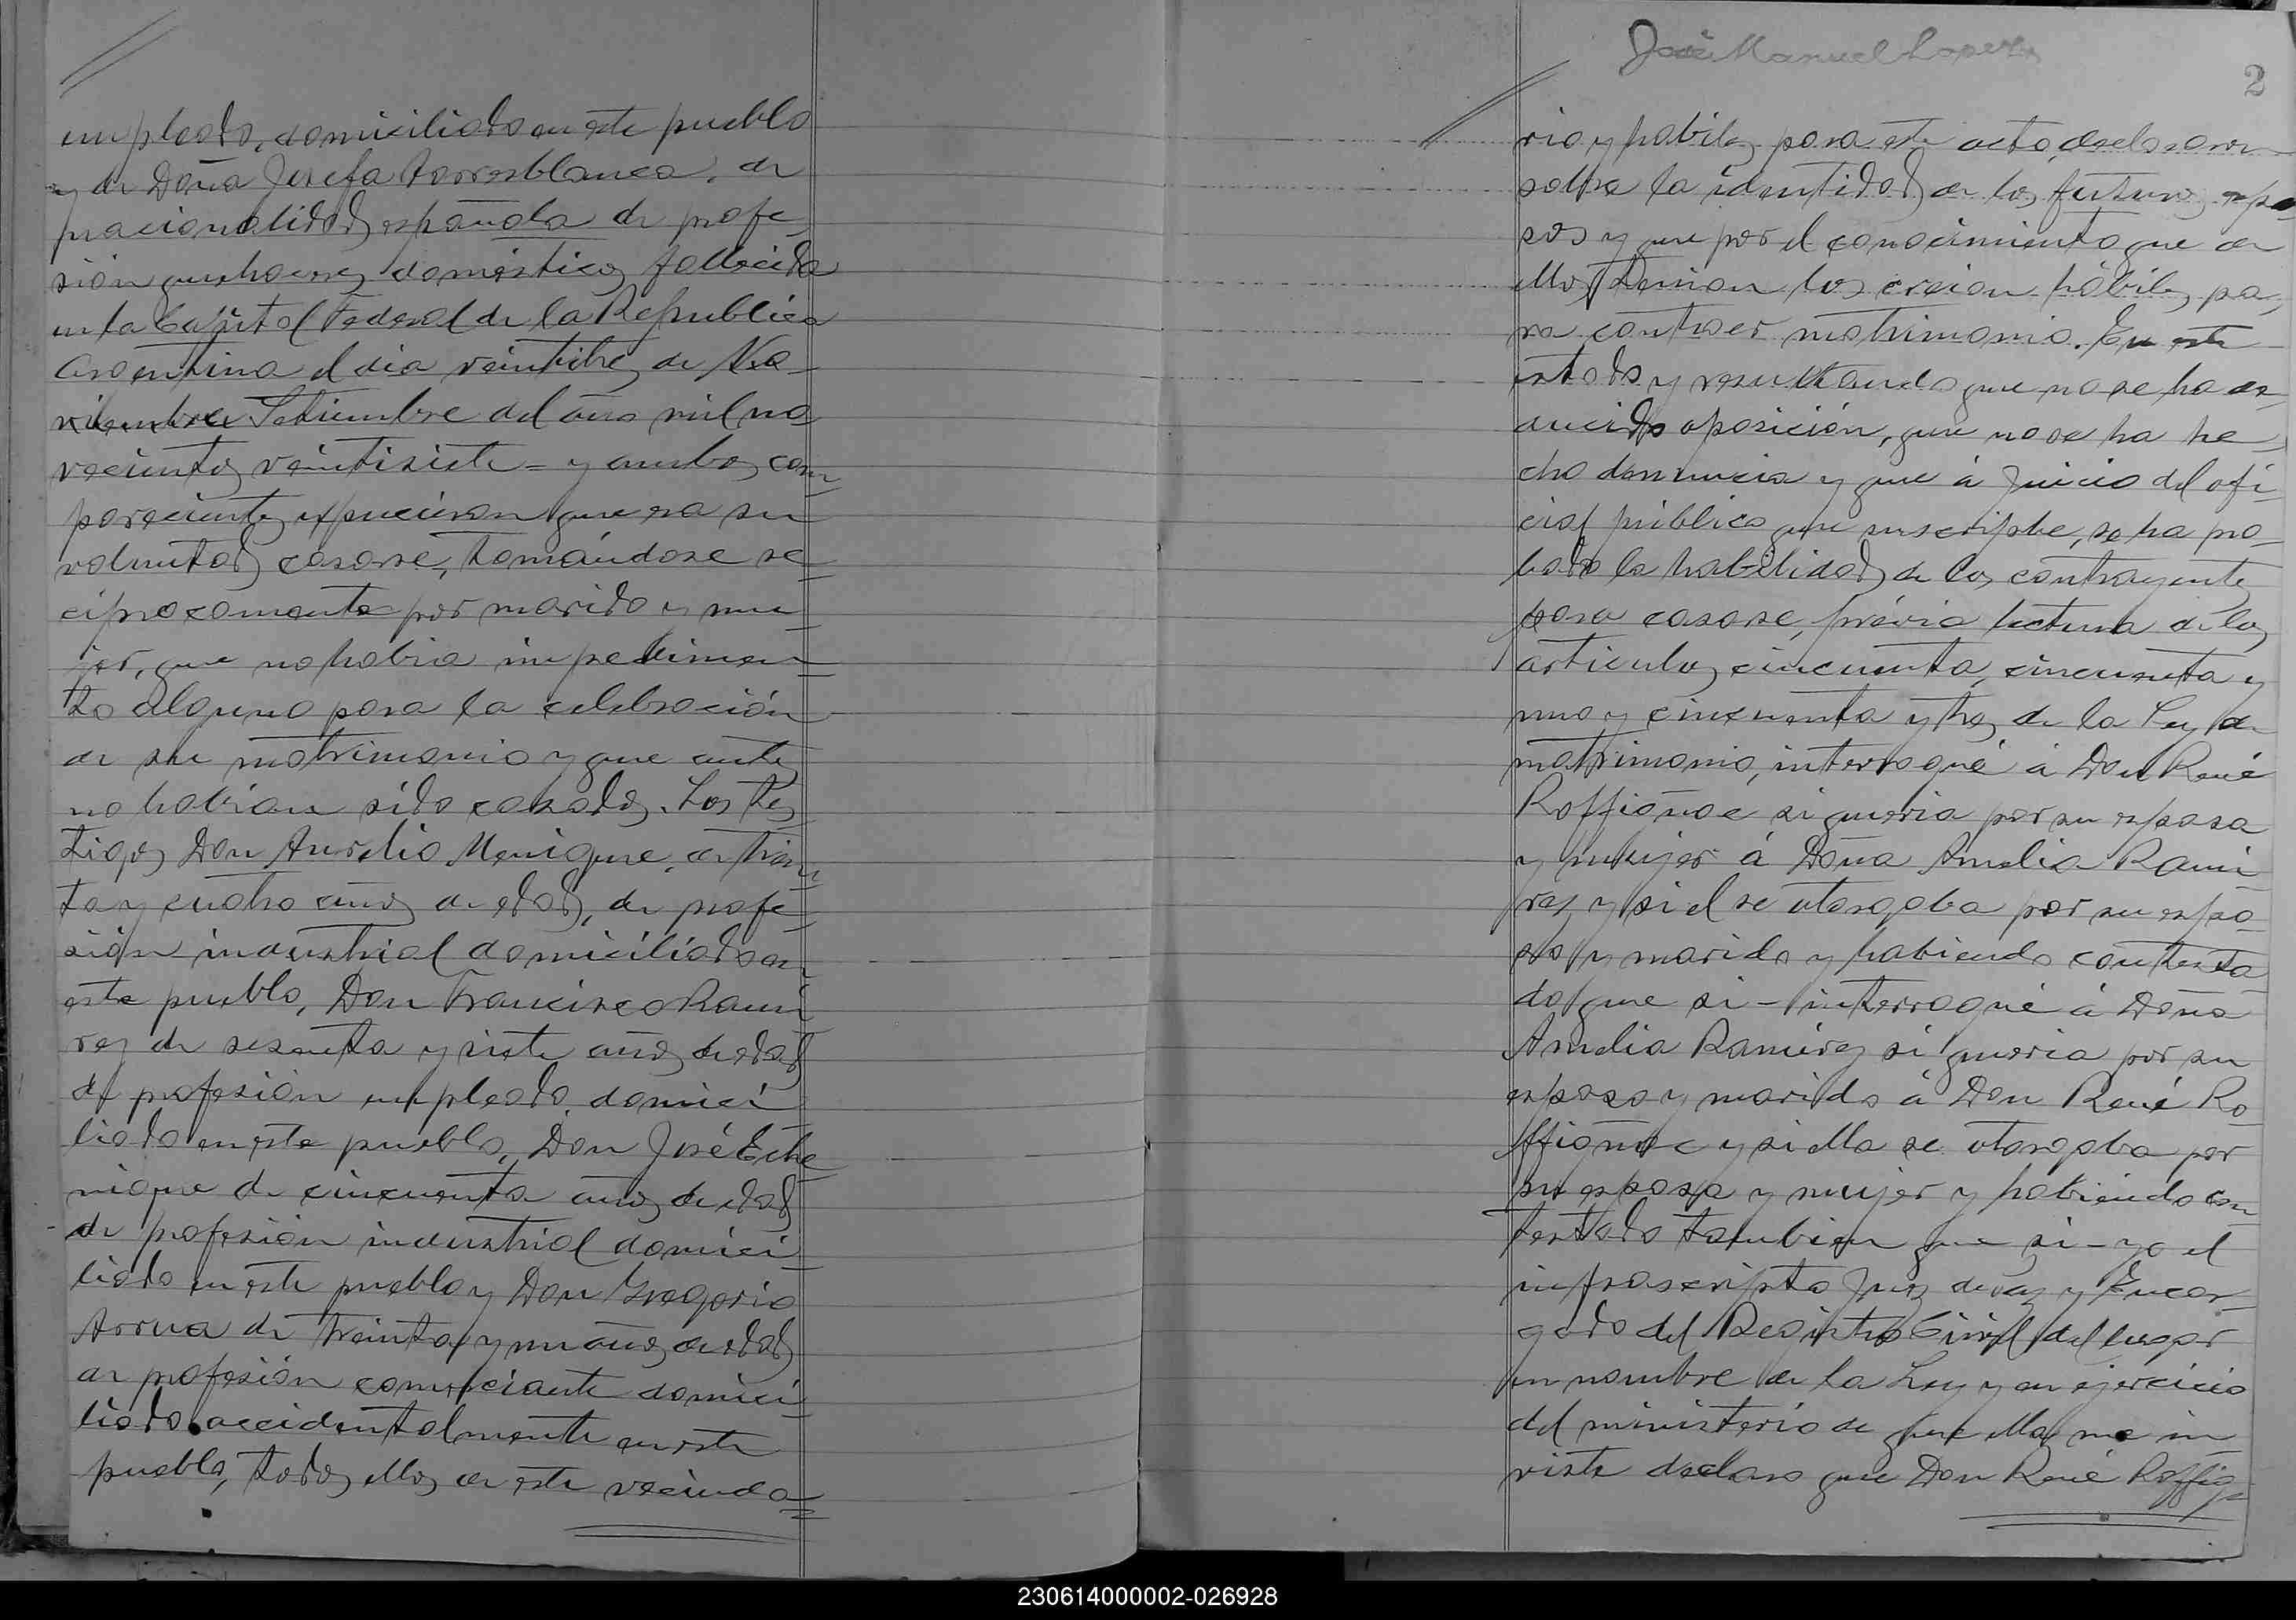 empleado, domiciliado en este pueblo
y de Doña Josefa Torresblanca, de
nacionalidad española de profe-
sión quehaceres domésticos fallecida
en la Capital Federal de la República
Argentina el dia veintitres de No-
viembre Setiembre del año mil no-
vecientos veintisiete = y ambos com-
parecientes expusieron que era su
voluntad casarse, tomándose re-
ciprocamente por marido y mu-
jer, que no habia impedimen-
to alguno para la celebración
de su matrimonio y que antes
no habian sido casados. Los tes-
tigos Don Aurelio Menique, de trein-
ta y cuatro años de edad, de profe-
sión industrial domiciliado en
este pueblo, Don Francisco Rami
rez de sesenta y siete años de edad
de profesión empleado domici-
liado en este pueblo, Don José Eche
nique de cincuenta años de edad
de profesión industrial domici-
liado en este pueblo y Don Gregorio
Arrua de treinta y un años de edad
de profesión comerciante domici-
liado accidentalmente en este
pueblo, todos ellos de este vecinda-
José Manuel Lopez
2
rio y habiles para este acto, declararon
sobre la identidad de los futuros espo
sos y que por el conocimiento que de
ellos tenian los creian hábiles pa-
ra contraer matrimonio. En este
estado y resultando que no se ha de-
ducido oposición, que no se ha he-
cho denuncia y que á juicio del ofi-
cial público que suscripbe, se ha pro-
bado la habilidad de los contrayentes
para casarse, prévia lectura de los
articulos cincuenta, cincuenta y
uno y cincuenta y tres de la Ley de
matrimonio, interrogué á Don René
Roffignoc si queria por su esposa
y mujer á Doña Amelia Rami-
rez y si el se otorgaba por su espo-
so y marido y habiendo contesta-
do que si - interrogué á Doña
Amelia Ramirez si queria por su
esposo y marido á Don René Ro-
ffignoc y si ella se otorgaba por
su esposa y mujer y habiendo con-
testado tambien que si - yo el
infrascripto Juez de Paz y Encar-
gado del Registro Civil del lugar
en nombre de la Ley y en ejercicio
del ministerio de que ella me in-
viste declaro que Don René Roffig-
230614000002-026928